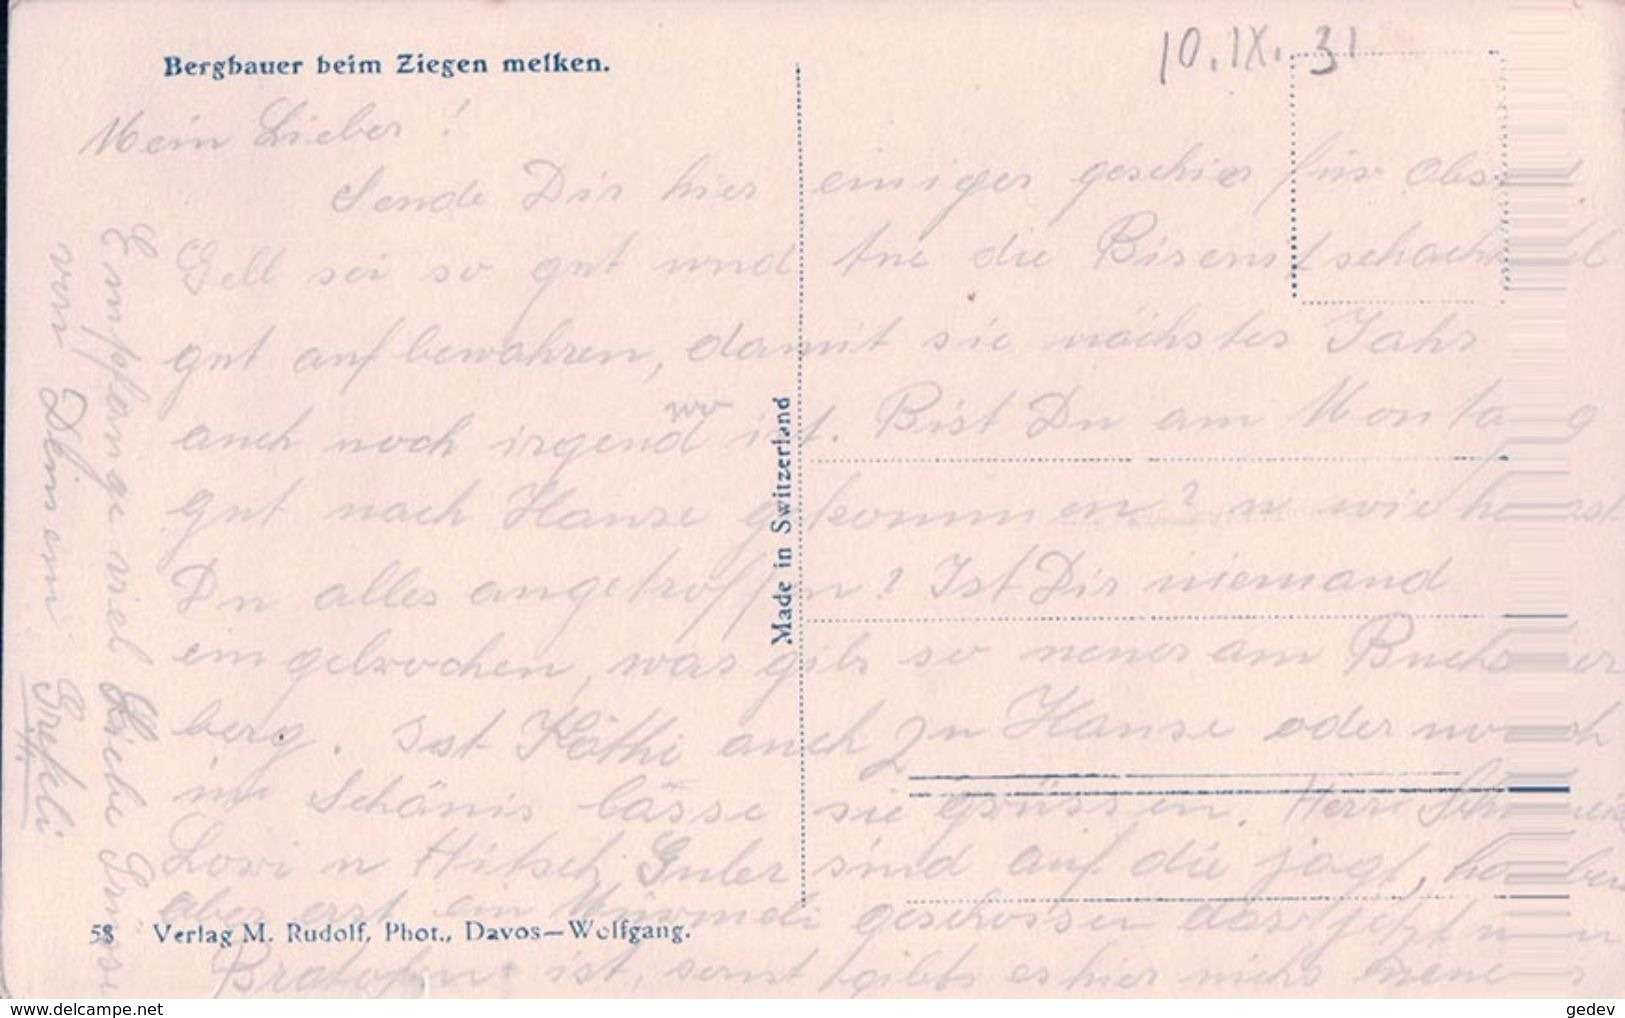 Bergbauer beim Ziegen melken.
10. IX. 31
Mein Lieber!
Sende Dir hier einiger geschier für Obst.
Gell sei so gut und tue die
gut aufbewahren, damit sie nächstes Jahr
auch noch irgendwo ist. Bist Du am Montag
gut nach Hause gekommen? u wie hast
Du alles angetroffen? Ist Dir niemand
eingebrochen, was gibs so neues am Buchser
berg. Ist Käthi auch zu Hause oder noch
in Schänis lässe sie grüssen. Herr
u Hitsch Guler sind auf die jagt, haben
aber erst ein Murmeli geschossen das jetzt
ist, sonst gibts es hier nichts neues
Empfange viel Liebe Grüsse
von Deinem
Gretli
Made in Switzerland
58 Verlag M. Rudolf, Phot., Davos—Wolfgang.
gedev